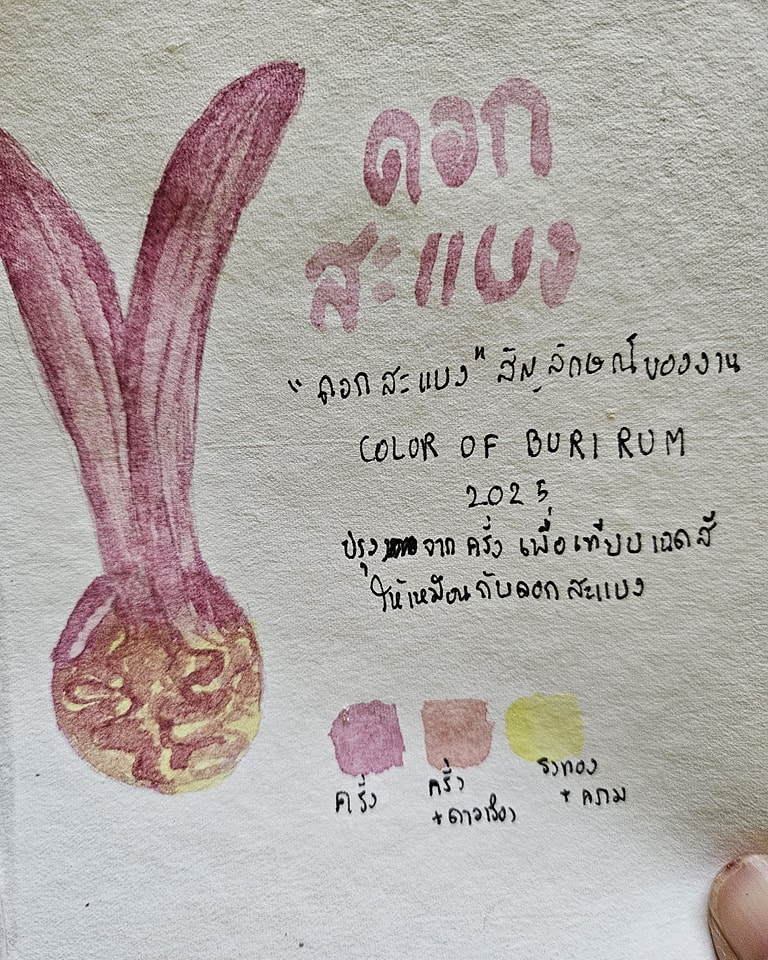 ดอก
สะแบง
"ดอกสะแบง" สัญลักษณ์ของงาน
COLOR OF BURIRUM
2025
ปรุง จาก ครั่ง เพื่อเทียบเฉดสี
ให้เหมือนกับดอกสะแบง
ครั่ง
ครั่ง
+ดาวเรือง
รงทอง
+ คราม